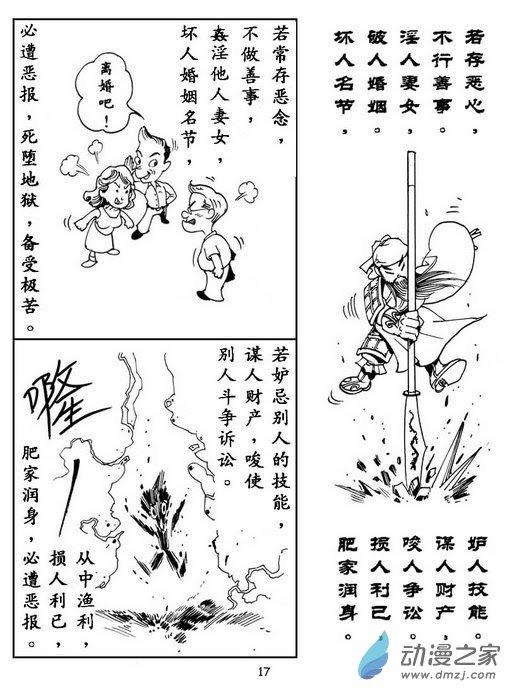 若存恶心，
不行善事。
淫人妻女，
破人婚姻。
坏人名节，
妒人技能
谋人财产，
唆人争讼。
损人利己，
肥家润身。
若常存恶念，
不做善事，
姦淫他人妻女，
坏人婚姻名节，
离婚吧！
必遭恶报，死堕地狱，备受极苦。
若妒忌别人的技能，
谋人财产，唆使
别人斗争诉讼。
从中渔利，
损人利己，
肥家润身，必遭恶报。
17
动漫之家
www.dmzj.com